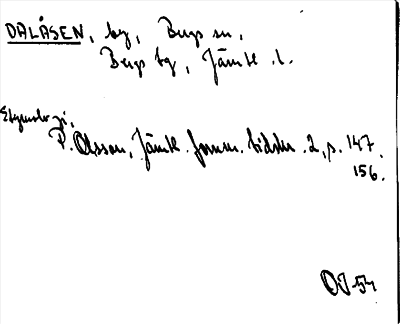 DALÅSEN, by, Bergs sn,
Bergs tg, Jämtl. l.
Etymologi,
P. Olsson, Jämtl. fornm. tidskr. 2, p. 147.
156.
OJ-54